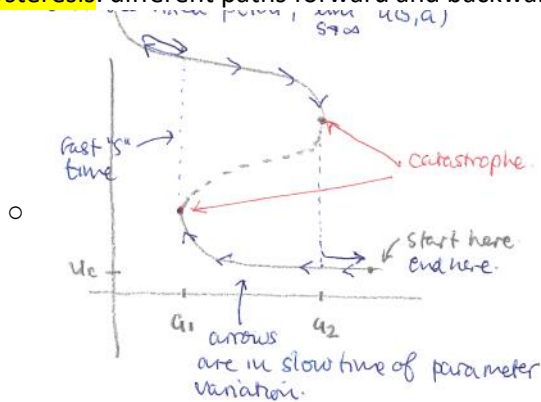 steresis: different paths forward and backwa
u(s,a)
s→∞
fast "s"
time
catastrophe.
start here
end here.
uc
a1
a2
arrows
are in slow time of parameter
variation.